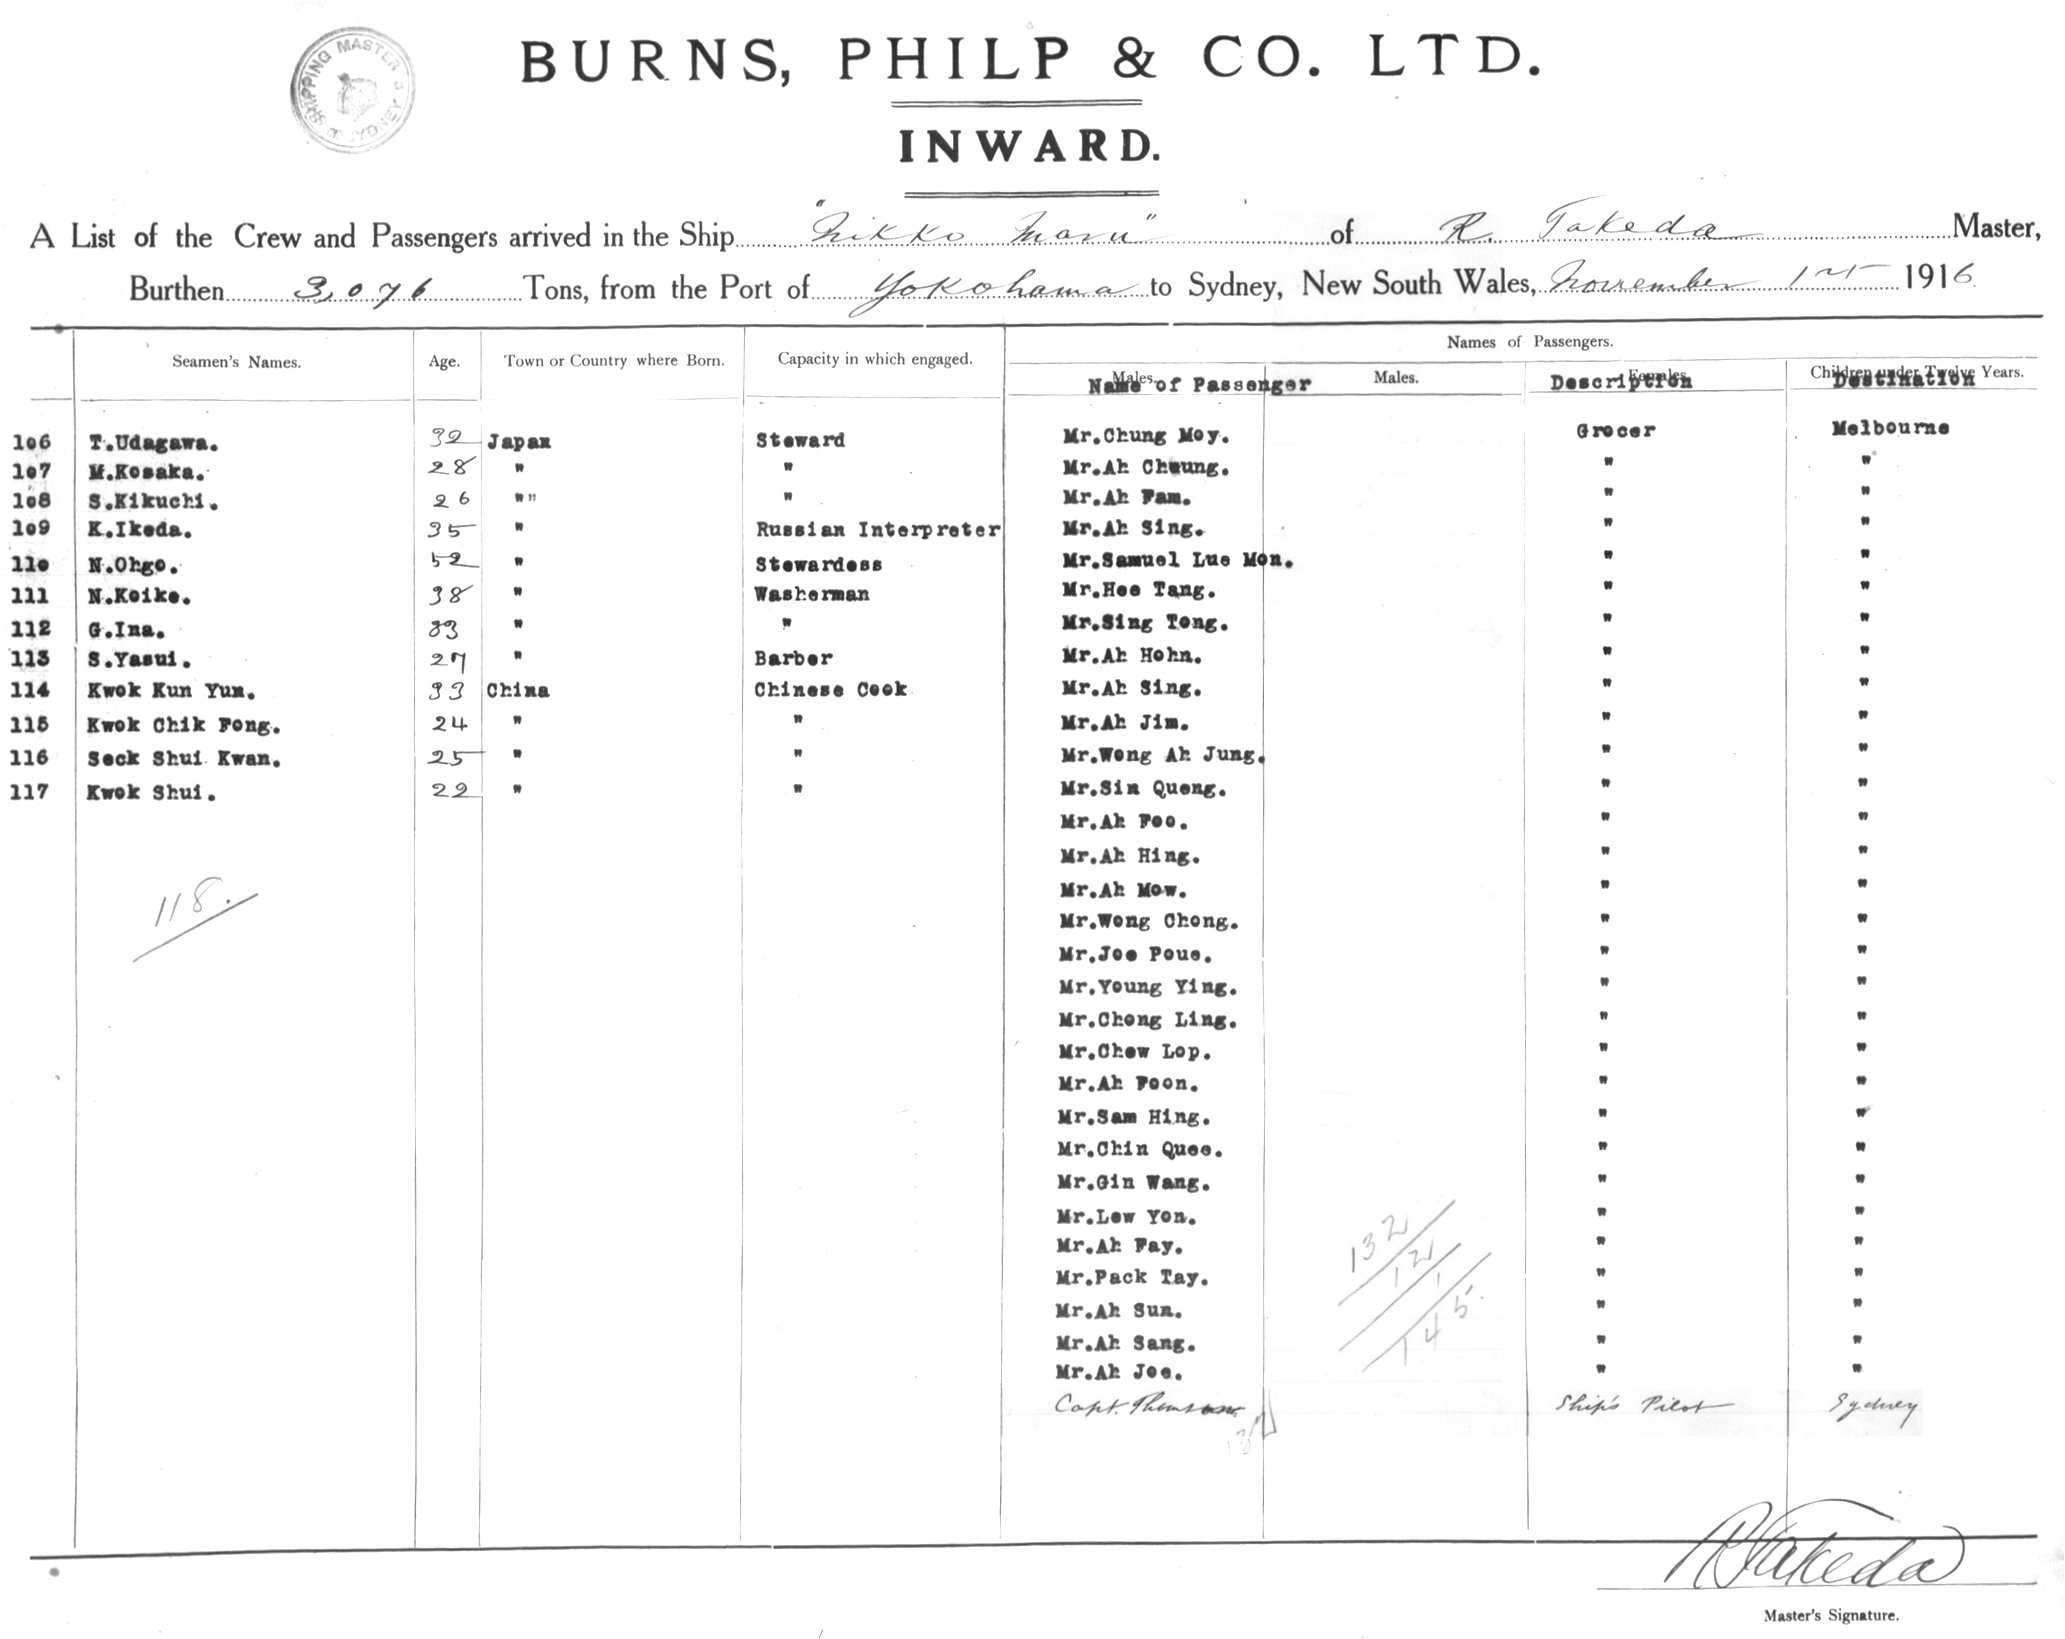 SHIPPING MASTER SYDNEY
BURNS, PHILP & CO. LTD.
INWARD.
A List of the Crew and Passengers arrived in the Ship "Nikko Maru" of R. Takeda Master,
Burthen 3,076 Tons, from the Port of Yokohama to Sydney, New South Wales, November 1st 1916
Names of Passengers.
Seamen's Names. Age. Town or Country where Born. Capacity in which engaged. Males. Males. Females. Children under Twelve Years.
Name of Passenger Description Destination
106 T.Udagawa. 32 Japan Steward Mr.Chung Moy. Grocer Melbourne
107 M.Kosaka. 28 " " Mr.Ah Cheung. " "
108 S.Kikuchi. 26 "" " Mr.Ah Fam. " "
109 K.Ikeda. 35 " Russian Interpreter Mr.Ah Sing. " "
110 N.Ohgo. 52 " Stewardess Mr.Samuel Lue Mon. " "
111 N.Koike. 38 " Washerman Mr.Hee Tang. " "
112 G.Ina. 33 " " Mr.Sing Tong. " "
113 S.Yasui. 27 " Barber Mr.Ah Hohn. " "
114 Kwok Kun Yun. 33 China Chinese Cook Mr.Ah Sing. " "
115 Kwok Chik Fong. 24 " " Mr.Ah Jim. " "
116 Seck Shui Kwan. 25 " " Mr.Wong Ah Jung. " "
117 Kwok Shui. 22 " " Mr.Sin Quong. " "
Mr.Ah Foo. " "
Mr.Ah Hing. " "
118. Mr.Ah Mow. " "
Mr.Wong Chong. " "
Mr.Joe Poue. " "
Mr.Young Ying. " "
Mr.Chong Ling. " "
Mr.Chew Lop. " "
Mr.Ah Foon. " "
Mr.Sam Hing. " "
Mr.Chin Quee. " "
Mr.Gin Wang. " "
Mr.Lew Yon. " "
132 Mr.Ah Fay. " "
12 Mr.Pack Tay. " "
1 Mr.Ah Sun. " "
145. Mr.Ah Sang. " "
Mr.Ah Joe. " "
Capt. Ship's Pilot Sydney
R Takeda
Master's Signature.